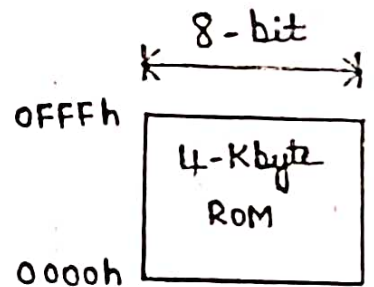 8-bit
0FFFh
4-Kbyte
ROM
0000h